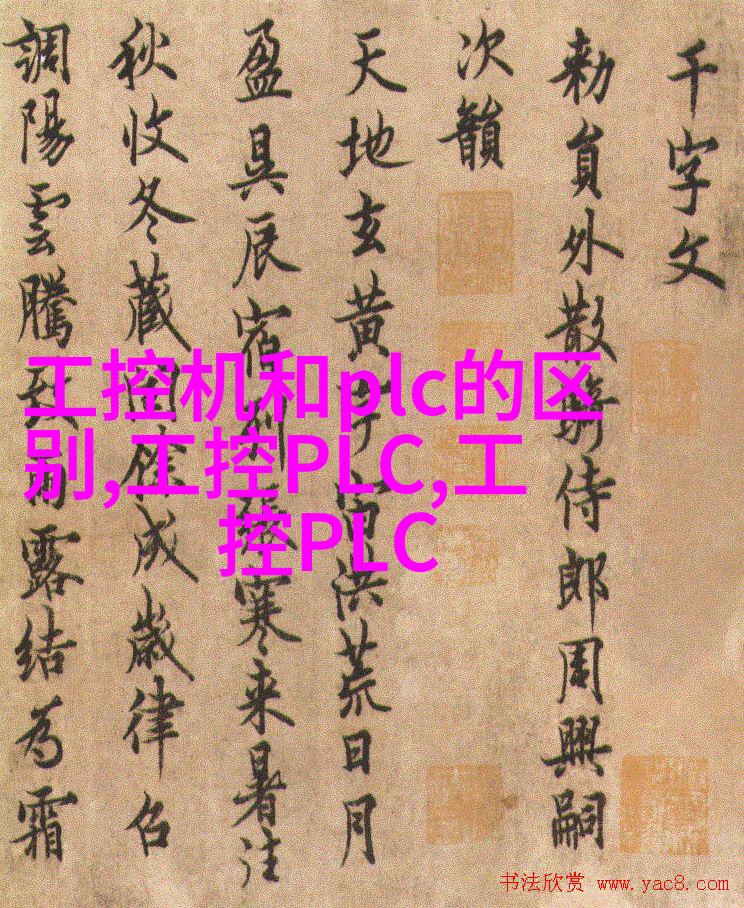 千字文
勅員外散騎侍郎周興嗣
次韻
天地玄黄宇宙洪荒日月
盈昃辰宿列張寒来暑往
秋收冬藏閏餘成歲律召
調陽雲騰致雨露結為霜
工控机和plc的区
别,工控PLC,工
控PLC
书法欣赏 www.yac8.com